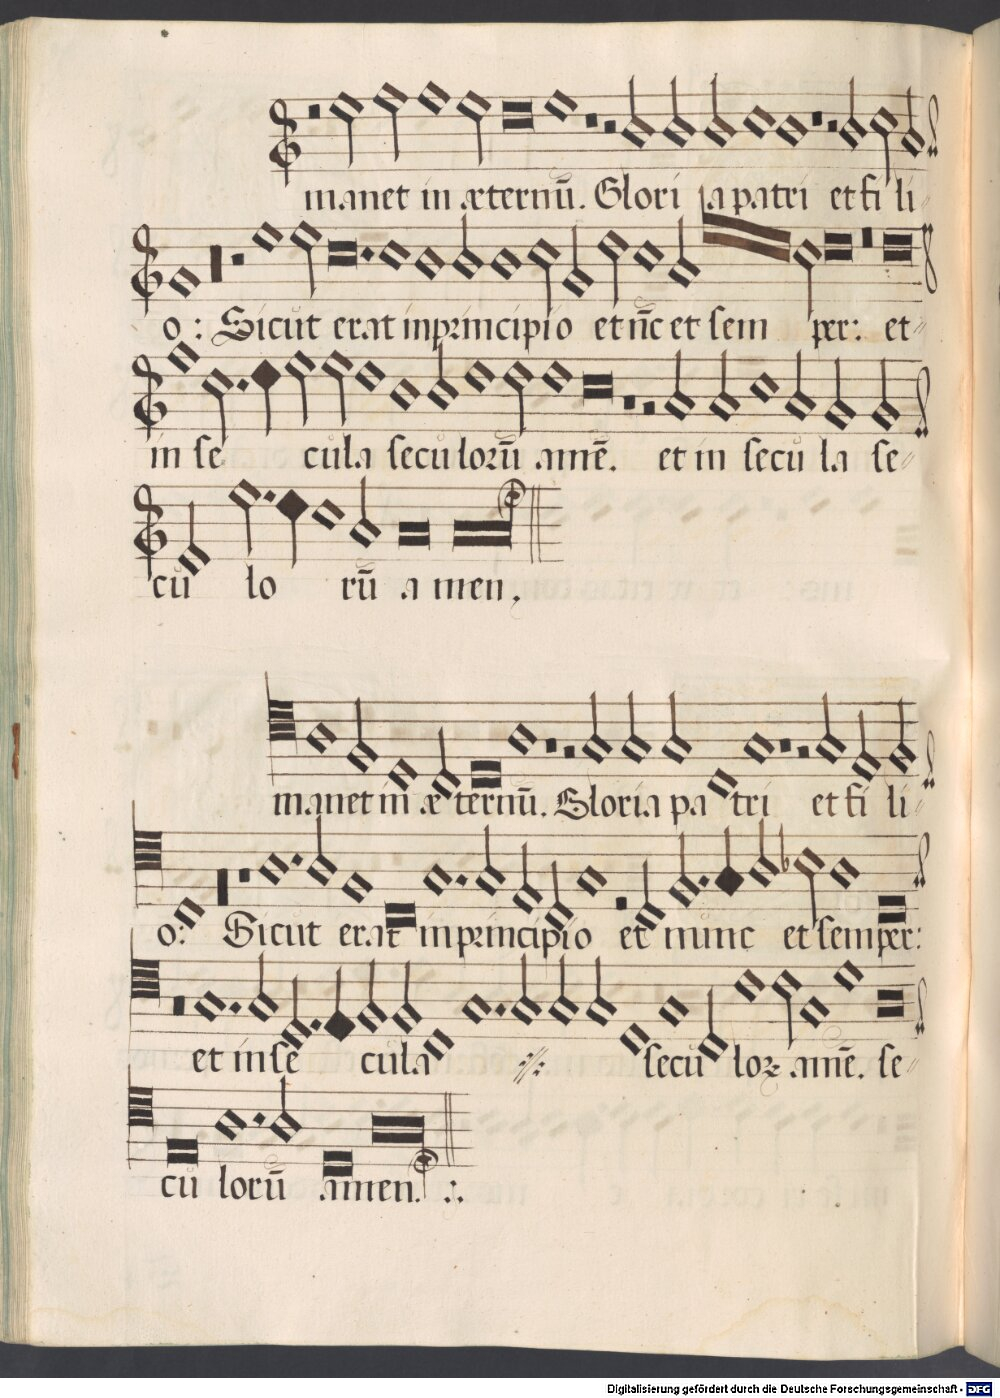 manet in æternū. Glori ia patri et fi li
o: Sicut erat in principio et nūc et sem per: et
in se cula seculorū amē. et in secu la se
cu lo rū a men.
manet in æ ternū. Gloria pa tri et fi li
o: Sicut erat in principio et nunc et semper:
et in se cula secu loꝝ amē. se
cu lorū amen.
Digitalisierung gefördert durch die Deutsche Forschungsgemeinschaft - DFG